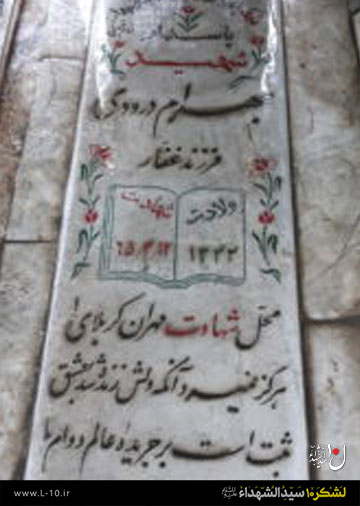 پاسدار
شهید
بهرام درودی
فرزند غفار
ولادت شهادت
۱۳۴۲ ۶۵٫۴٫۱۲
محل شهادت مهران کربلای ۱
هرگز نمیرد آنکه دلش زنده شد بعشق
ثبت است بر جریده عالم دوام ما
لشکر۱۰ سیّدالشهداء
www.L-10.ir